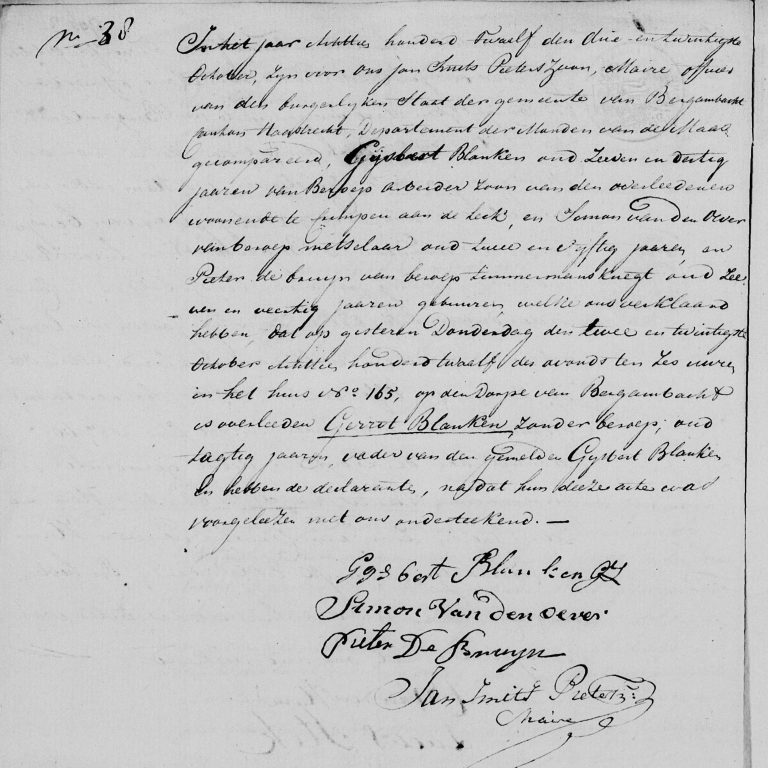 No 38
In het jaar Achttien honderd Twaalf den drie en twintigste
October, zyn voor ons Jan Smits Pieters Zoon, Maire officier
van den burgerlyken Staat der gemeente van Bergambacht
canton Haastrecht, Departement der Monden van de Maas
gecompareerd, Gysbert Blanken oud Zeeven en dertig
jaaren van Beroep arbeider Zoon van den overleedenen
woonende te aan de Leck, en Simon van den Oever
van beroep metselaar oud twee en vyftig jaaren, en
Pieter de bruyn van beroep timmermansknegt oud Zee-
ven en veertig jaaren gebuuren, welke ons verklaard
hebben, dat op gisteren Donderdag den twee en twintigste
October Achttien honderd twaalf des avonds ten Zes uuren
in het huis No 165, op den Dorpe van Bergambacht
is overleeden Gerrot Blanken, zonder beroep, oud
tagtig jaaren, vader van den gemelden Gysbert Blanken
En hebben de declaranten, na dat hun deeze acte was
voorgeleezen met ons onderteekend. —
Gysbert Blanken
Simon Van den oever
Pieter De Bruyn
Jan Smits Pieterz:
Maire